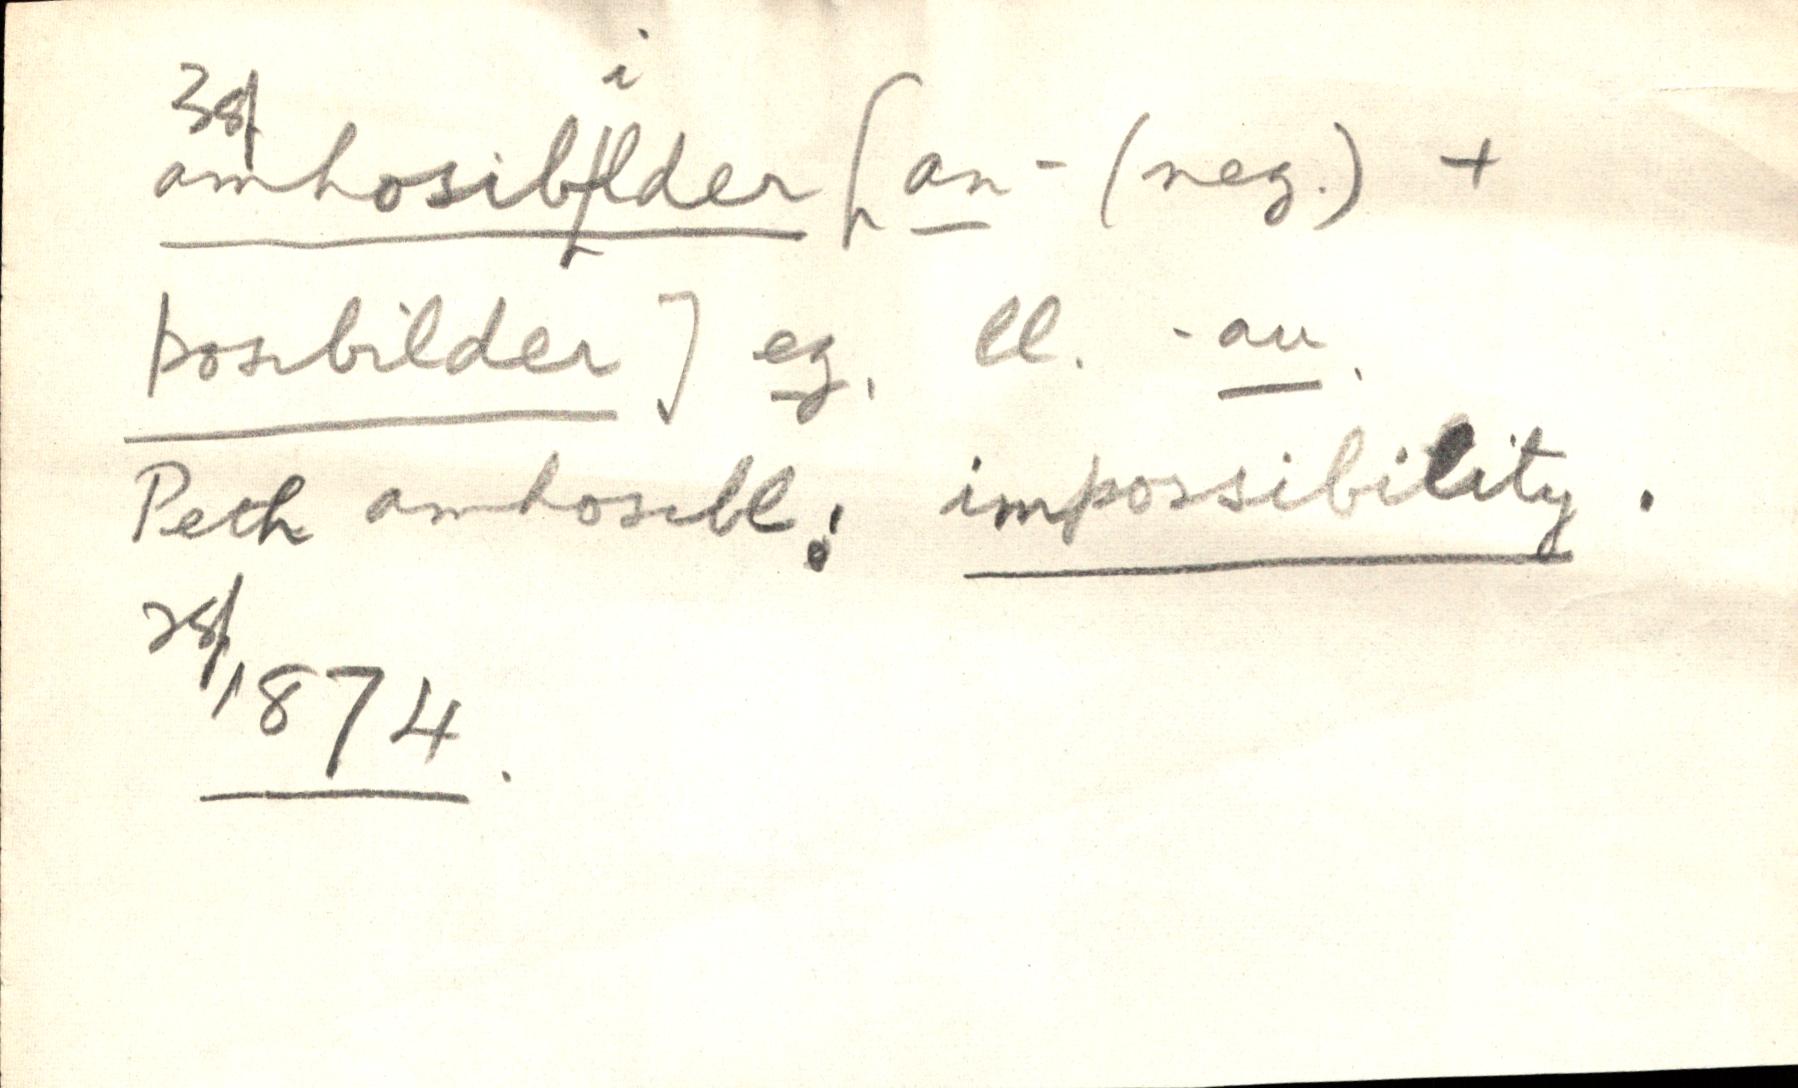 38/
amhosibilder [an- (neg.) +
posibilder] eg. ll. -au.
Peth amhosibl: impossibility.
28/
1874.